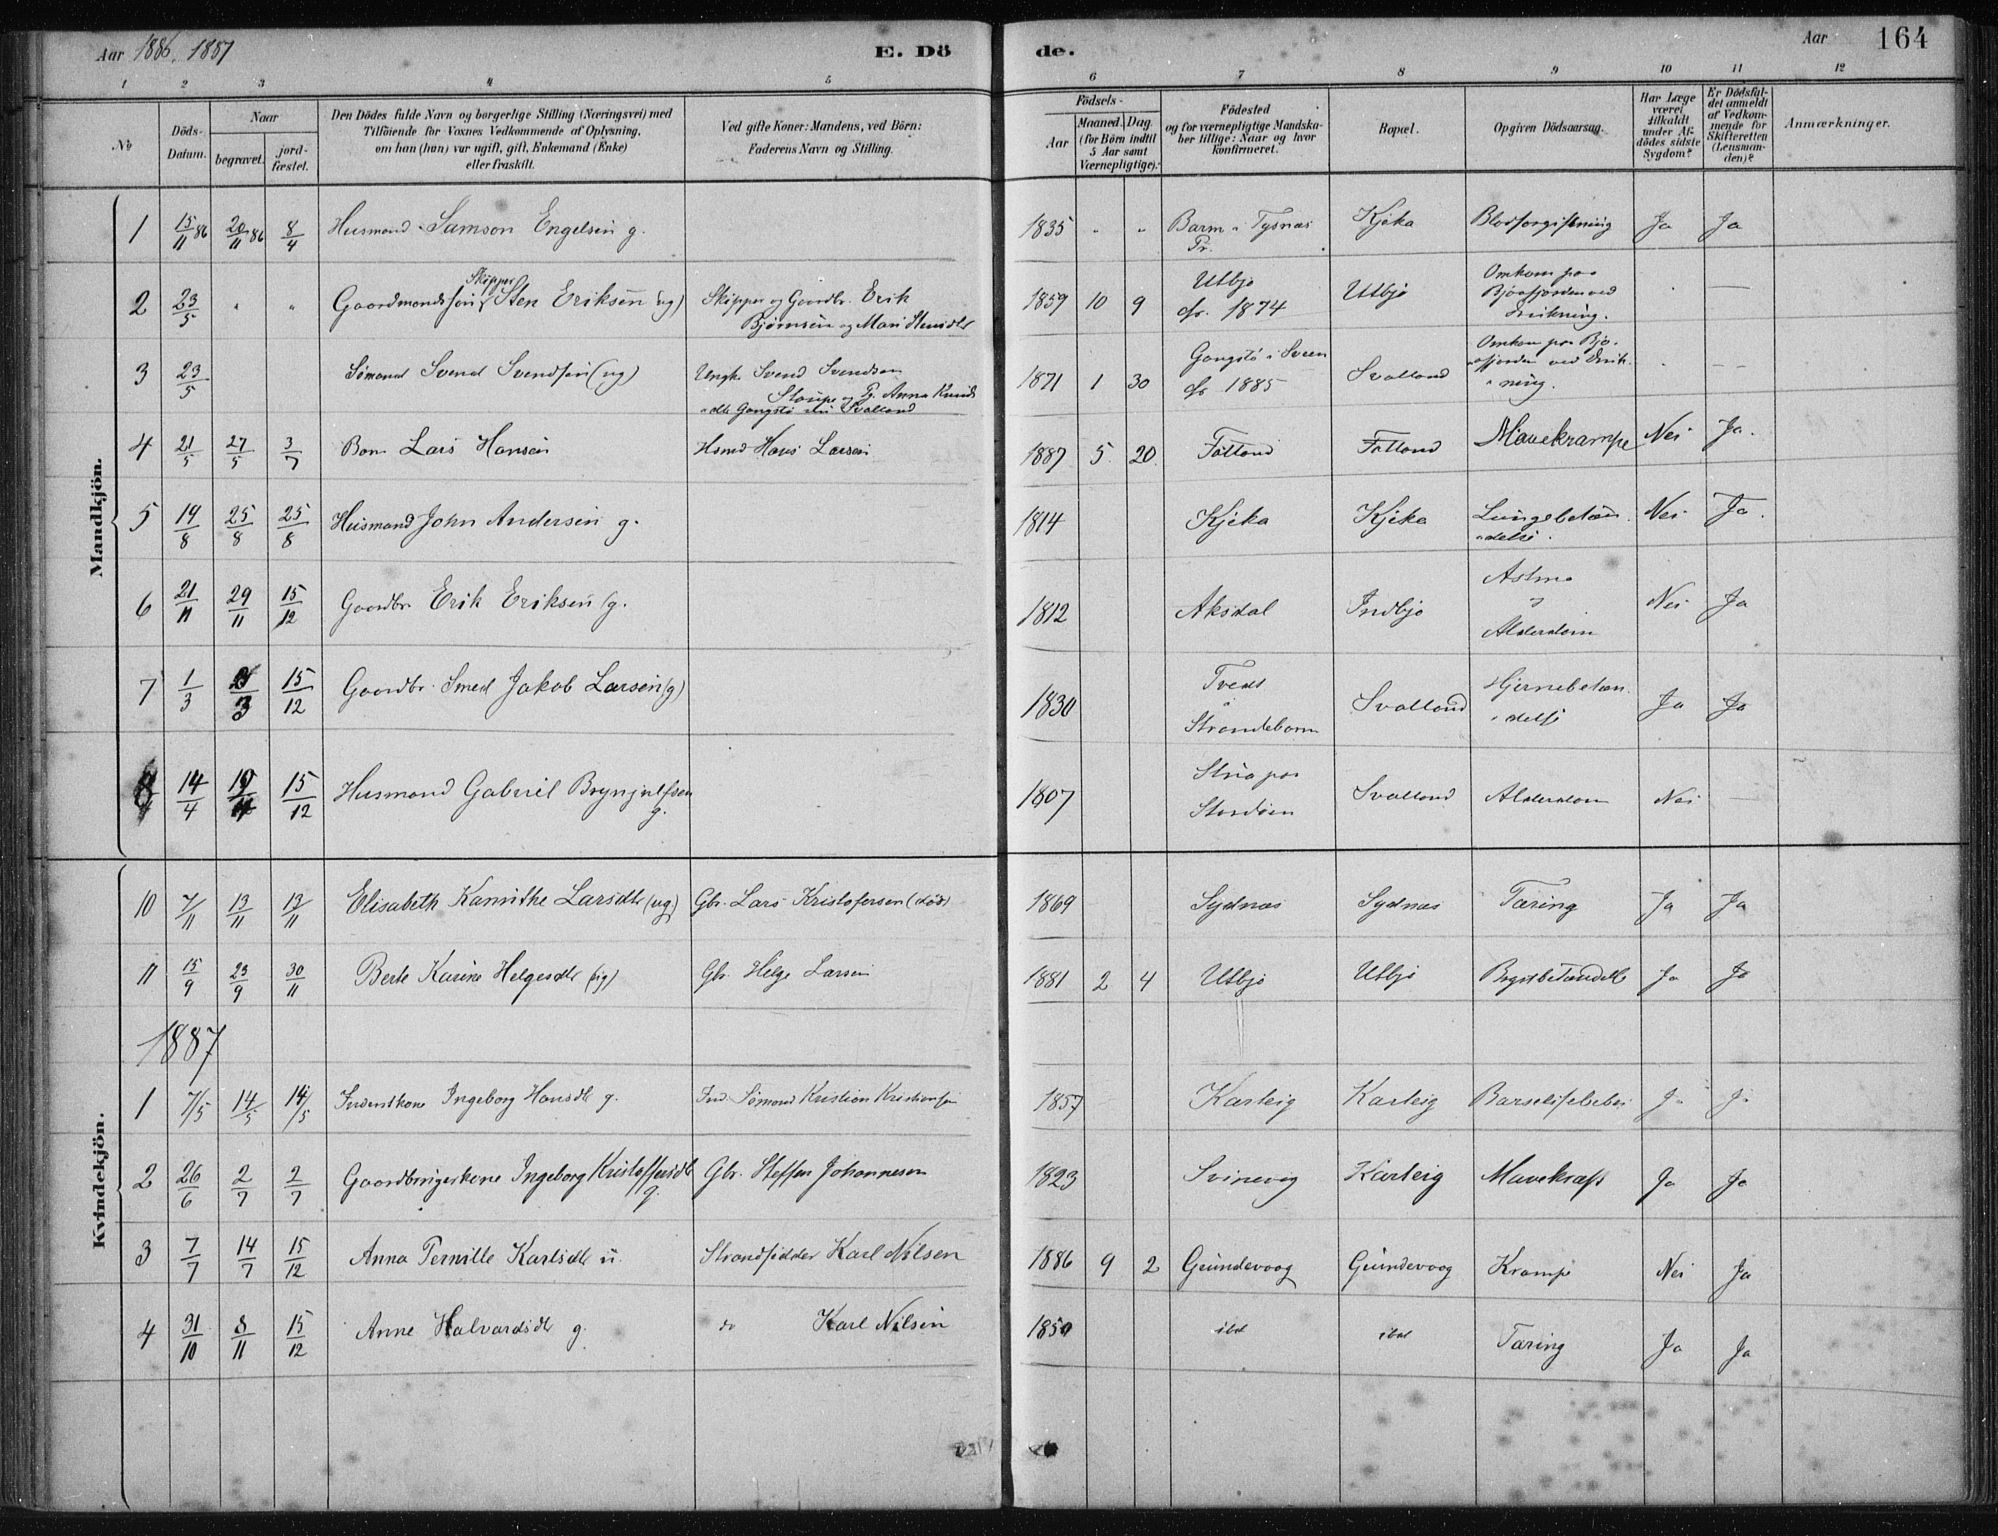 Aar 1886. 1887 E. Dö de. Aar 164
1 2 3 4 5 6 7 8 9 10 11 12
No Döds-Datum. Naar begravet. jord-fæstet. Den Dödes fulde Navn og borgerlige Stilling (Næringsvei) med Tilföiende for Voxnes Vedkommende af Oplysning, om han (hun) var ugift, gift, Enkemand (Enke) eller fraskilt. Ved gifte Koner: Mandens, ved Börn: Faderens Navn og Stilling. Födsels- Aar Maaned. Dag. (for Börn indtil 5 Aar samt Værnepligtige). Födested og for værnepligtige Mandskaber tillige: Naar og hvor konfirmeret. Bopæl. Opgiven Dödsaarsag. Har Læge været tilkaldt under Afdödes sidste Sygdom? Er Dödsfaldet anmeldt af Vedkommende for Skifteretten (Lensmanden)? Anmærkninger.
Mandkjön.
1 15/11 86 20/11 86 8/4 Husmand Samson Engelsen g. 1835 " " Barm i Tysnæs Pr. Kjeka Blodforgiftning Ja Ja
2 23/5 " " Gaardmandssøn & Skipper Sten Eriksen (ug) Skipper og Gaardbr. Erik Bjørnsen og Mari Stensdtr 1859 10 9 Utbjo cfr. 1874 Utbjo Omkom paa Bjoafjorden ved Drukning. " —
3 23/5 Sømand Svend Svendsen (ug) Ungk. Svend Svendsen Stoupe og P. Anna Knuds "dtr Gangstø nu Svolland 1871 1 30 Gangstø i Sveen cfr 1885 Svolland Omkom paa Bjo-"afjorden ved Druk-"ning. " — —
4 21/5 27/5 3/7 Barn Lars Hansen Hsmd Hans Larsen 1887 5 20 Fatland Fatland Mavekrampe Nei Ja.
5 19/8 25/8 25/8 Husmand John Andersen g. 1814 Kjeka Kjeka Lungebetæn-"delse. Nei Ja.
6 21/11 29/11 15/12 Gaardbr Erik Eriksen (g. 1812 Aksdal Indbjo Astma og Alderdom Nei Ja
7 1/3 15/12 Gaardbr. Smed Jakob Larsen (g) 1830 Tvedt i Strandebarm Svolland Hjernebetæn-"delse Ja Ja
8 14/4 15/12 Husmand Gabriel Brynjulfsen g. 1807 paa Stordøen Svolland Alderdom Nei —
Kvindekjön.
10 7/11 13/11 13/11 Elisabeth Kamitke Larsdtr (ug) Gbr. Lars Kristofersen (død) 1869 Sydnæs Sydnæs Tæring Ja Ja
11 15/9 23/9 30/11 Berte Karine Helgesdtr (ug) Gbr. Helge Larsen 1881 2 4 Utbjo Utbjo Brystbetændelse Ja Ja
1887
1 7/5 14/5 14/5 Inderstkone Ingeborg Hansdtr g. Ind. Sømand Kristian Kristiansen 1857 Karteig Karteig Barselsfeber Ja Ja
2 26/6 2/7 2/7 Gaardbrugerkone Ingeborg Kristoffersdtr g. Gbr. Steffen Johannesen 1823 Svinevig Karteig Mavekræft Ja Ja
3 7/7 14/7 15/12 Anna Pernille Karlsdtr u. Strandsidder Karl Nilsen 1886 9 2 Gundevaag Gundevaag Krampe Nei Ja
4 31/10 8/11 15/12 Anne Halvardsdtr g. do Karl Nilsen 1850 ibd ibd Tæring Ja Ja